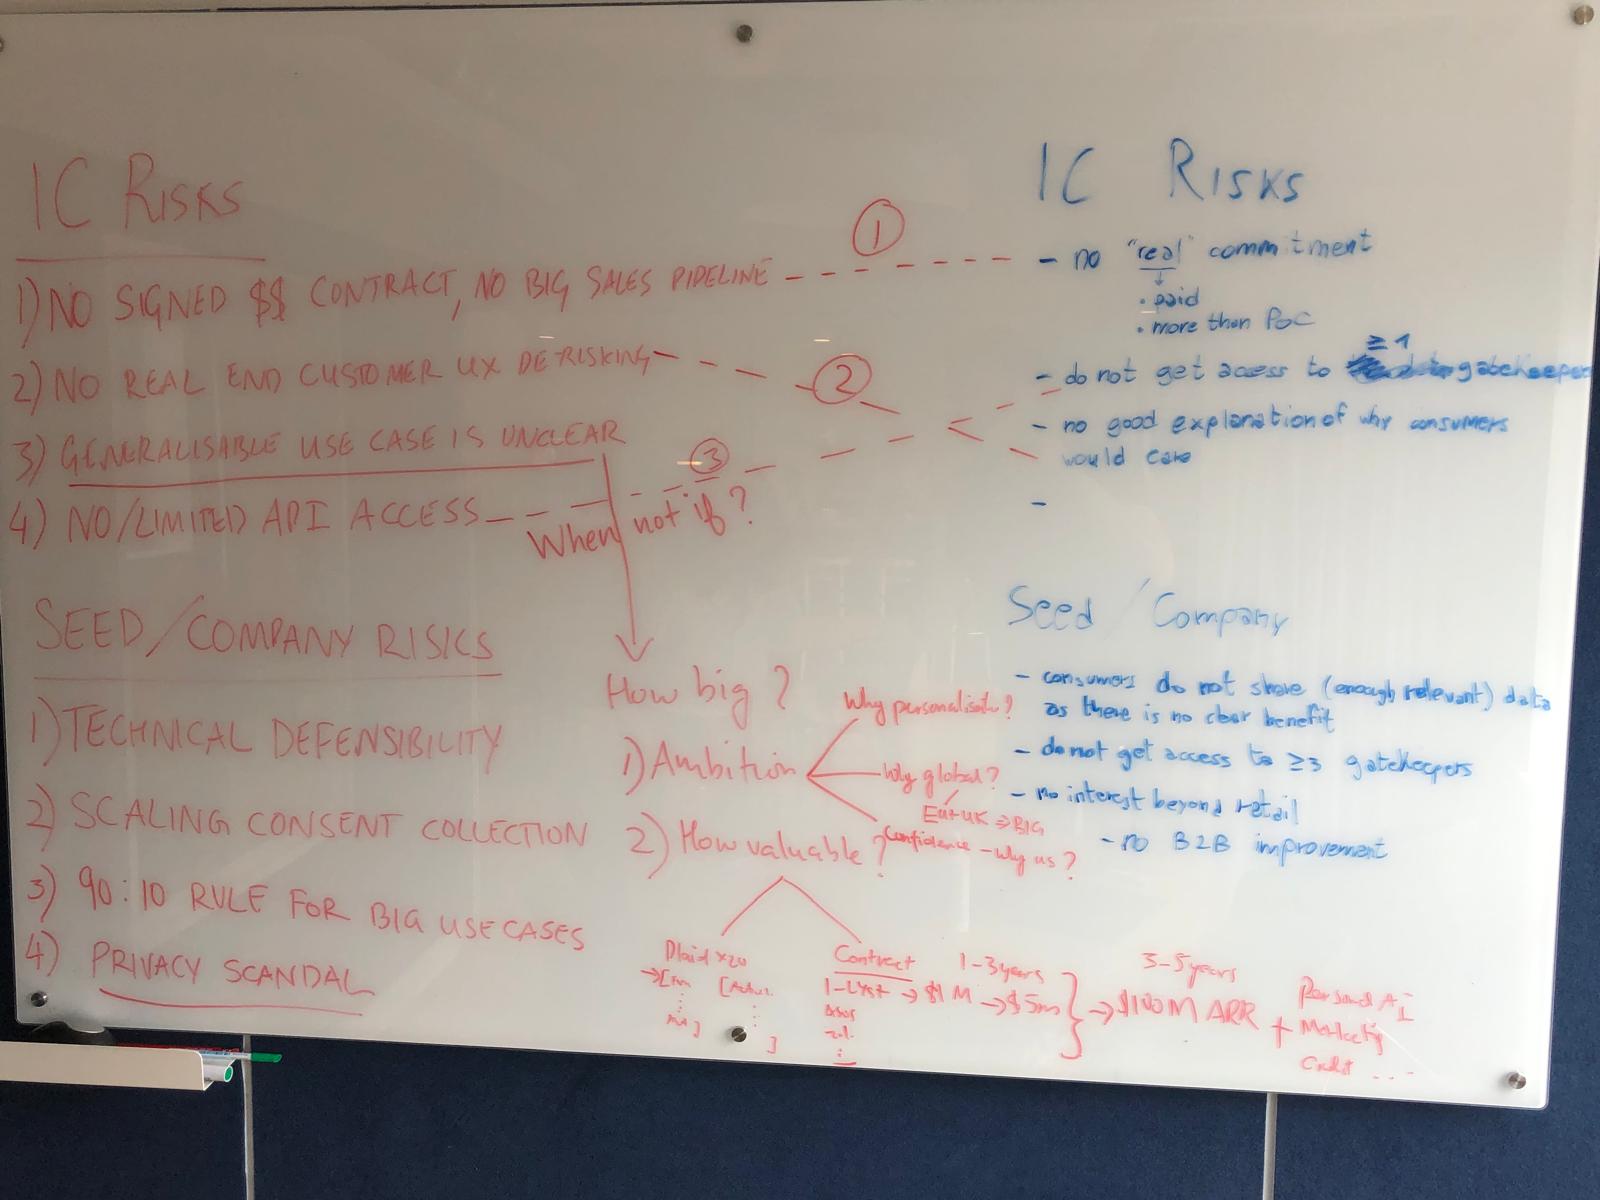 IC RISKS
1) NO SIGNED $$ CONTRACT, NO BIG SALES PIPELINE
2) NO REAL END CUSTOMER UX DE-RISKING
3) GENERALISABLE USE CASE IS UNCLEAR
4) NO/LIMITED API ACCESS
1
2
3
When not if?
IC RISKS
- no "real" commitment
• paid
• more than PoC
≥1
- do not get access to gatekeepers
- no good explanation of why consumers
would care
-
SEED/COMPANY RISKS
1) TECHNICAL DEFENSIBILITY
2) SCALING CONSENT COLLECTION
3) 90:10 RULE FOR BIG USE CASES
4) PRIVACY SCANDAL
How big?
1) Ambition
Why personalisate?
Why global?
EU+UK ⇒ BIG
Confidence - why us?
2) How valuable?
Plaid x20
Contract
1-Lyst → $1M → $5m
ASOS
1-3 years
3-5 years
→ $100M ARR
+
Personal AI
Credit ...
Seed / Company
- consumers do not share (enough relevant) data
as there is no clear benefit
- do not get access to ≥3 gatekeepers
- no interest beyond retail
- no B2B improvement